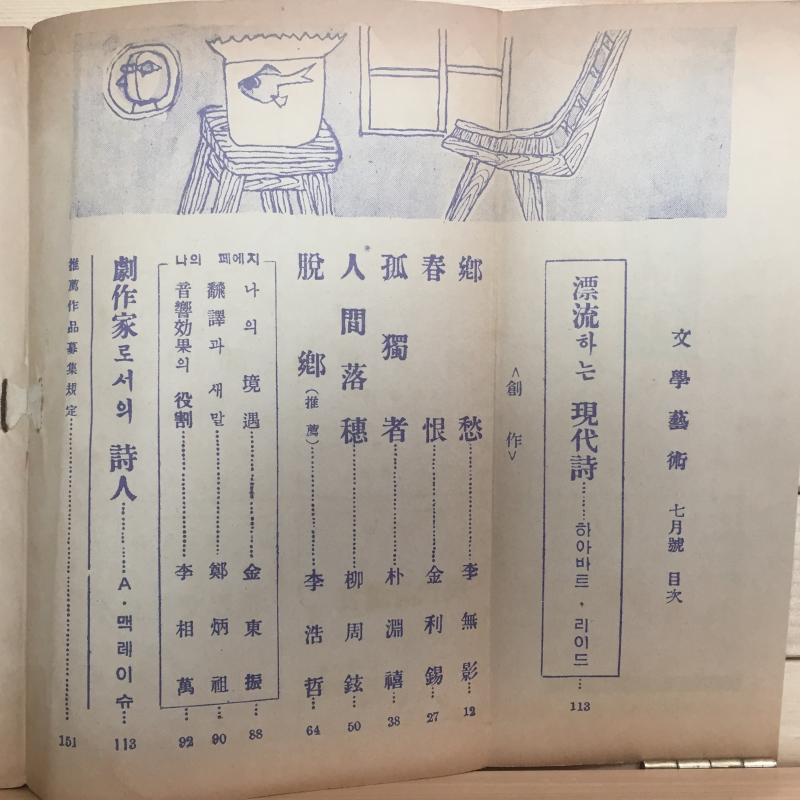 文學藝術 七月號 目次
漂流하는 現代詩……하아바트・리이드…113
<創作>
鄕愁……李無影…12
春恨……金利錫…27
孤獨者……朴淵禧…38
人間落穗……柳周鉉…50
脫鄕(推薦)……李浩哲…64
나의 페에지
나의 境遇……金東振…88
飜譯과 새말……鄭炳祖…90
音響効果의 役割……李相萬…92
劇作家로서의 詩人……A・맥레이슈…113
推薦作品募集規定……151